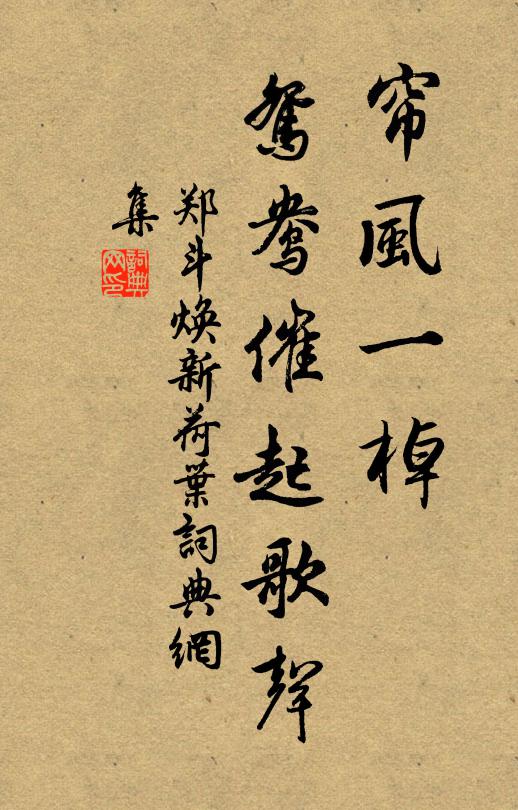 帘風一棹
鴛鴦催起歌聲
郑斗焕新荷葉詞典網
集
詞典
网印